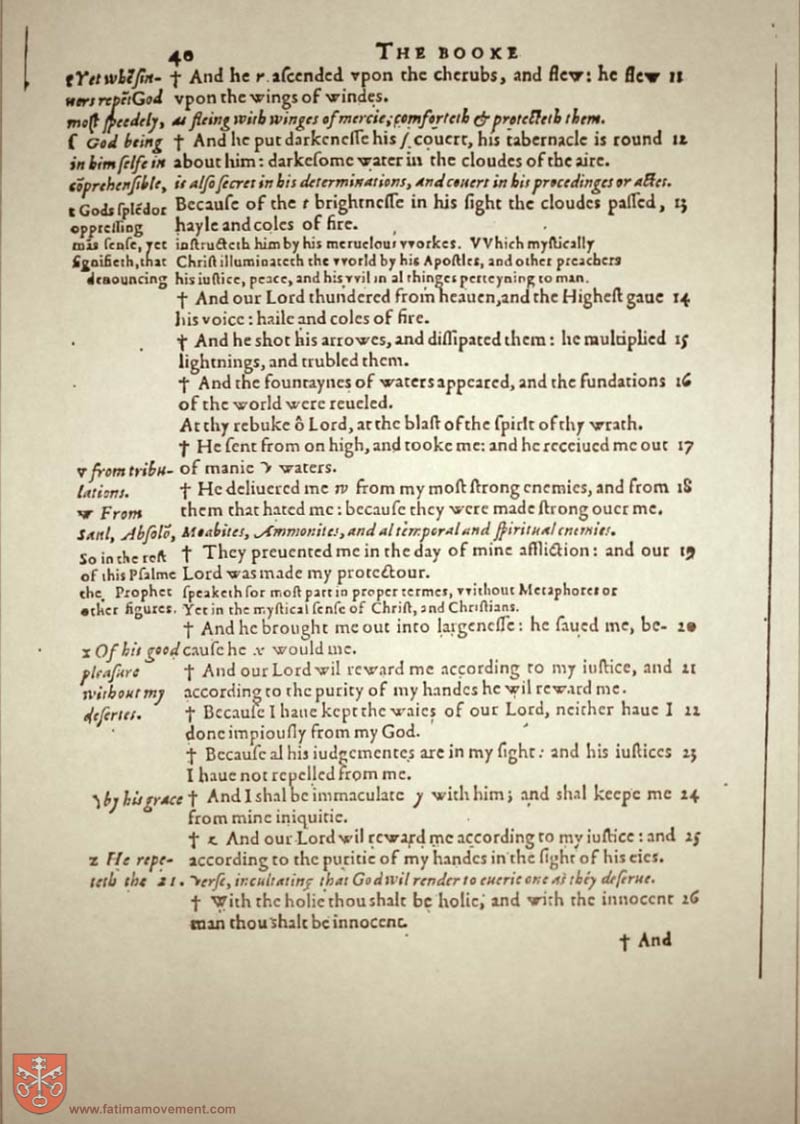 40 THE BOOKE
r Yet whē sin- † And he r ascended vpon the cherubs, and flew: he flew 11
ners repēt God vpon the wings of windes.
most speedely, as fleing with winges of mercie, comforteth & protecteth them.
ſ God being † And he put darkenesse his ſ couert, his tabernacle is round 12
in him selfe in about him: darkesome water in the cloudes of the aire.
cōprehensible, is also secret in his determinations, and couert in his procedinges or actes.
t Gods splēdor Because of the t brightnesse in his sight the cloudes passed, 13
oppressing hayle and coles of fire.
mās sense, yet instructeth him by his meruelous vvorkes. VVhich mystically
signifieth, that Christ illuminateth the vvorld by his Apostles, and other preachers
denouncing his iustice, peace, and his vvil in al thinges perteyning to man.
† And our Lord thundered from heauen, and the Highest gaue 14
his voice: haile and coles of fire.
† And he shot his arrowes, and dissipated them: he multiplied 15
lightnings, and trubled them.
† And the fountaynes of waters appeared, and the fundations 16
of the world were reueled.
At thy rebuke ô Lord, at the blast of the spirit of thy wrath.
† He sent from on high, and tooke me: and he receiued me out 17
v from tribu- of manie v waters.
lations. † He deliuered me w from my most strong enemies, and from 18
w From them that hated me: because they were made strong ouer me.
Saul, Absolō, Moabites, Ammonites, and al temporal and spiritual enemies.
So in the rest † They preuented me in the day of mine affliction: and our 19
of this Psalme Lord was made my protectour.
the Prophet speaketh for most part in proper termes, vvithout Metaphores or
other figures. Yet in the mystical sense of Christ, and Christians.
† And he brought me out into largenesse: he saued me, be- 20
x Of his good cause he x would me.
pleasure † And our Lord wil reward me according to my iustice, and 21
without my according to the purity of my handes he wil reward me.
desertes. † Because I haue kept the waies of our Lord, neither haue I 22
done impiously from my God.
† Because al his iudgementes are in my sight: and his iustices 23
I haue not repelled from me.
y by his grace † And I shal be immaculate y with him; and shal keepe me 24
from mine iniquitie.
† z And our Lord wil reward me according to my iustice: and 25
z He repe- according to the puritie of my handes in the sight of his eies.
teth the 21. verse, inculcating that God wil render to euerie one as they deserue.
† With the holie thou shalt be holie; and with the innocent 26
man thou shalt be innocent.
† And
www.fatimamovement.com